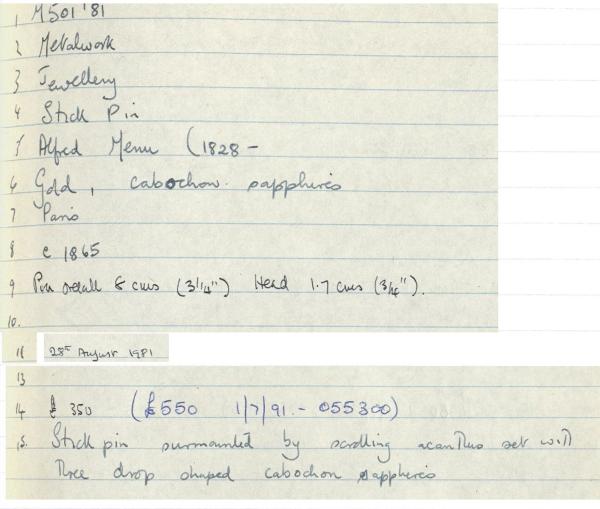 1 M501 '81
2 Metalwork
3 Jewellery
4 Stick Pin
5 Alfred Menu (1828 -
6 Gold, cabochon. sapphires
7 Paris
8 c 1865
9 Pin overall 8 cms (3 1/4") Head 1.7 cms (3/4").
10.
11 28th August 1981
13
14 £ 350 (£550 1/7/91 - 055300)
15. Stick pin surmounted by scrolling acanthus set with
three drop shaped cabochon sapphires